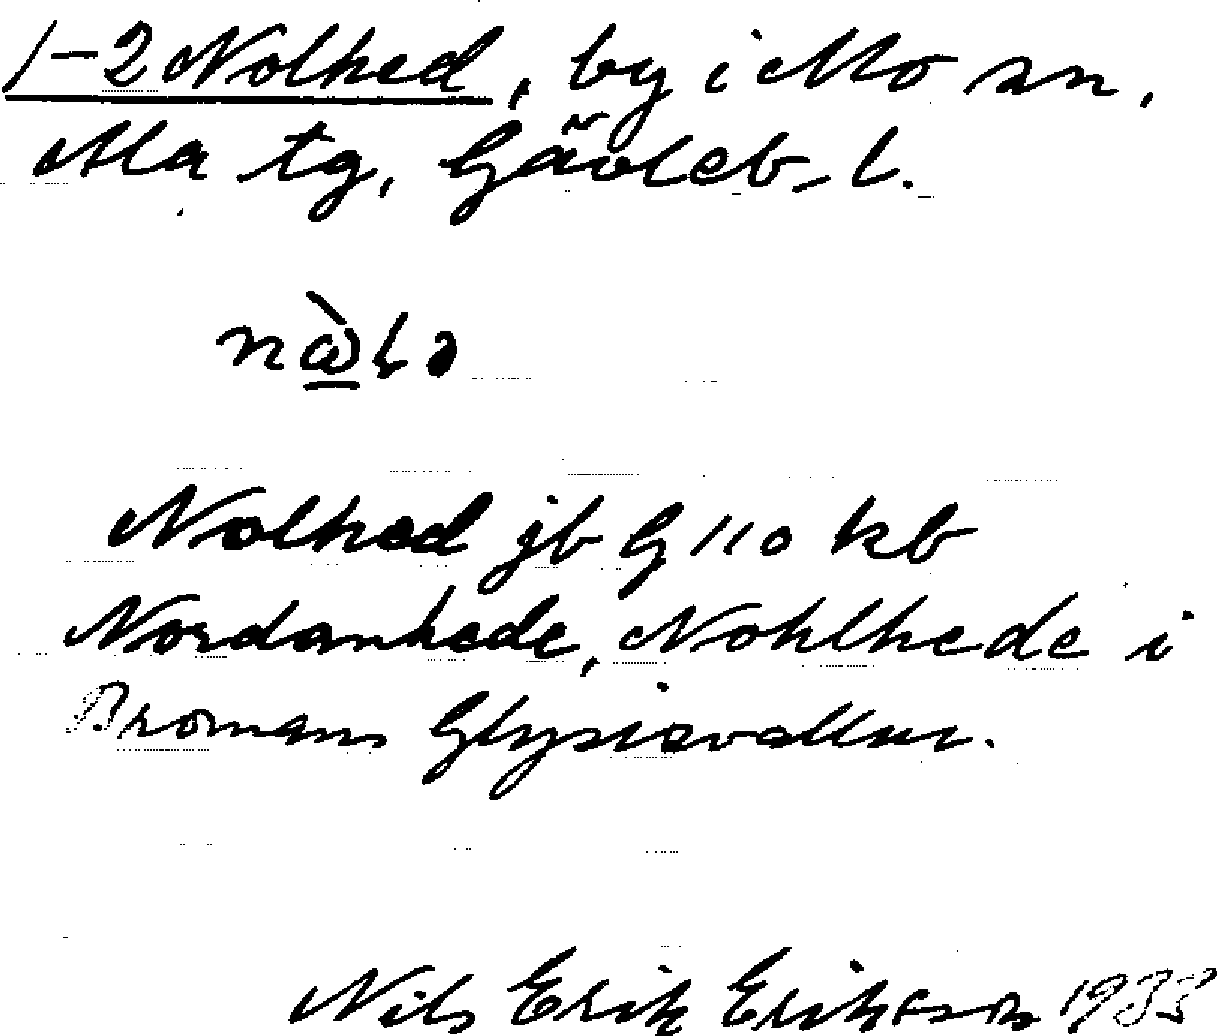 1-2 Nolhed, by i Mo sn,
Ala tg, Gävleb. l.
Nolhed jb G 110 kb
Nordanhede, Nohlhede i
Bromans Glysisvallur.
Nils Erik Erikson 1933